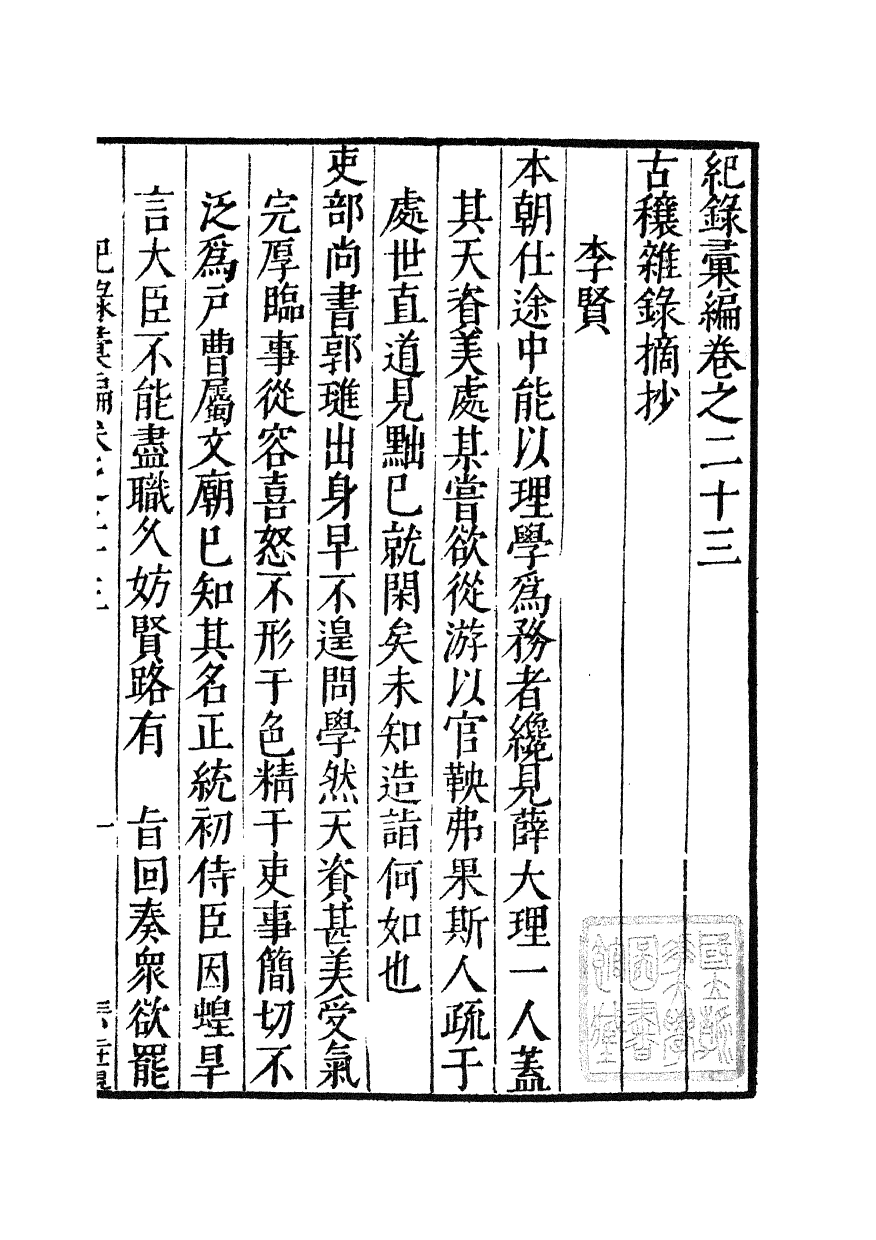 紀錄彙編卷之二十三
古穰雜錄摘抄
李賢
本朝仕途中能以理學爲務者纔見薛大理一人蓋
其天資美處某嘗欲從游以官鞅弗果斯人疏于
處世直道見黜已就閑矣未知造詣何如也
吏部尚書郭璡出身早不遑問學然天資甚美受氣
完厚臨事從容喜怒不形于色精于吏事簡切不
泛爲戶曹屬文廟已知其名正統初侍臣因蝗旱
言大臣不能盡職久妨賢路有　旨回奏衆欲罷
紀錄彙編卷之二十三　一